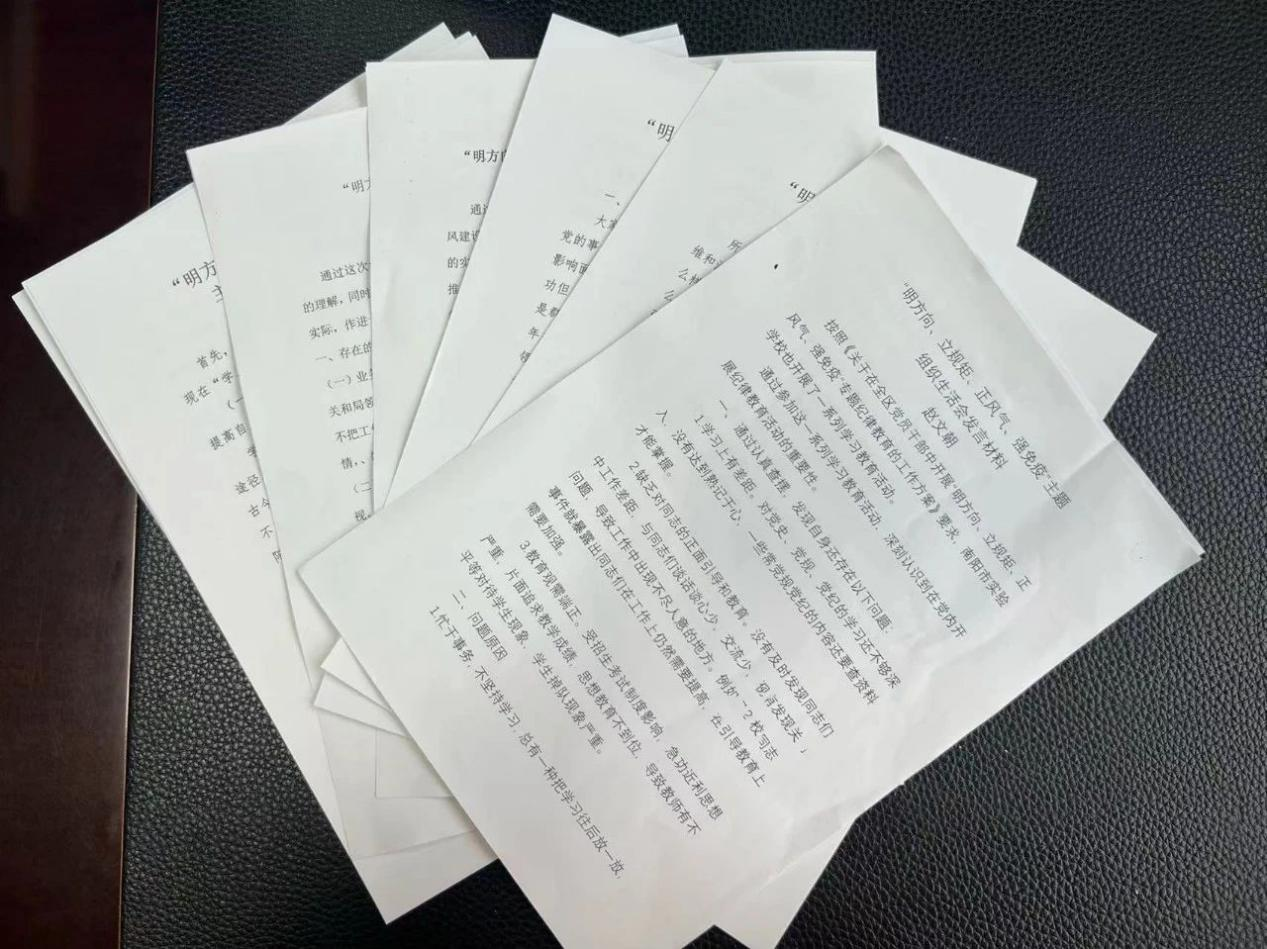 “明方
首先，
现在“学
（一
提高自
途径
古今
不
“明方
通过这次
的理解，同时
实际，作进
一、存在的
（一）业
关和局领
不把工
情，
（二
视
“明方向
通过
风建设
的实
推
“明
一、
大家
党的事
影响面
功但
是
年
“明
所
维和
么
么
“明方向、立规矩、正风气、强免疫”主题
组织生活会发言材料
赵文朝
按照《关于在全区党员干部中开展“明方向、立规矩、正
风气、强免疫”专题纪律教育的工作方案》要求，南阳市实验
学校也开展了一系列学习教育活动。
通过参加这一系列学习教育活动，深刻认识到在党内开
展纪律教育活动的重要性。
一、通过认真查摆，发现自身还存在以下问题：
1.学习上有差距。对党史、党规、党纪的学习还不够深
入，没有达到熟记于心，一些常党规党纪的内容还要查资料
才能掌握。
2.缺乏对同志的正面引导和教育。没有及时发现同志们
中工作差距，与同志们谈话谈心少，交流少，没有发现关
问题，导致工作中出现不尽人意的地方。例如“2校同志
事件就暴露出同志们在工作上仍然需要提高，在引导教育上
需要加强。
3.教育观需端正。受招生考试制度影响，急功近利思想
严重，片面追求教学成绩，思想教育不到位，导致教师有不
平等对待学生现象，学生掉队现象严重。
二、问题原因
1.忙于事务，不坚持学习，总有一种把学习往后放一放，